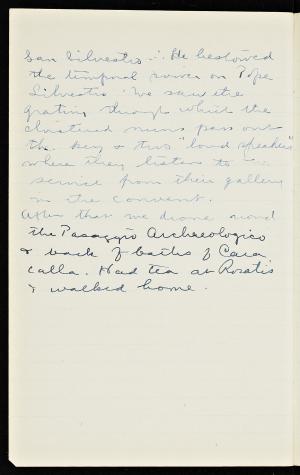 San Silvestro ∴ He bestowed
the temporal power on Pope
Silvestro. We saw the
grating through which the
cloistered nuns pass out
the key & two "loud speakers"
where they listen to
service from their gallery
in the convent.
After that we drove around
the Passaggio Archaeologico
& back of baths of Cara
calla. Had tea at Rosatis
& walked home.